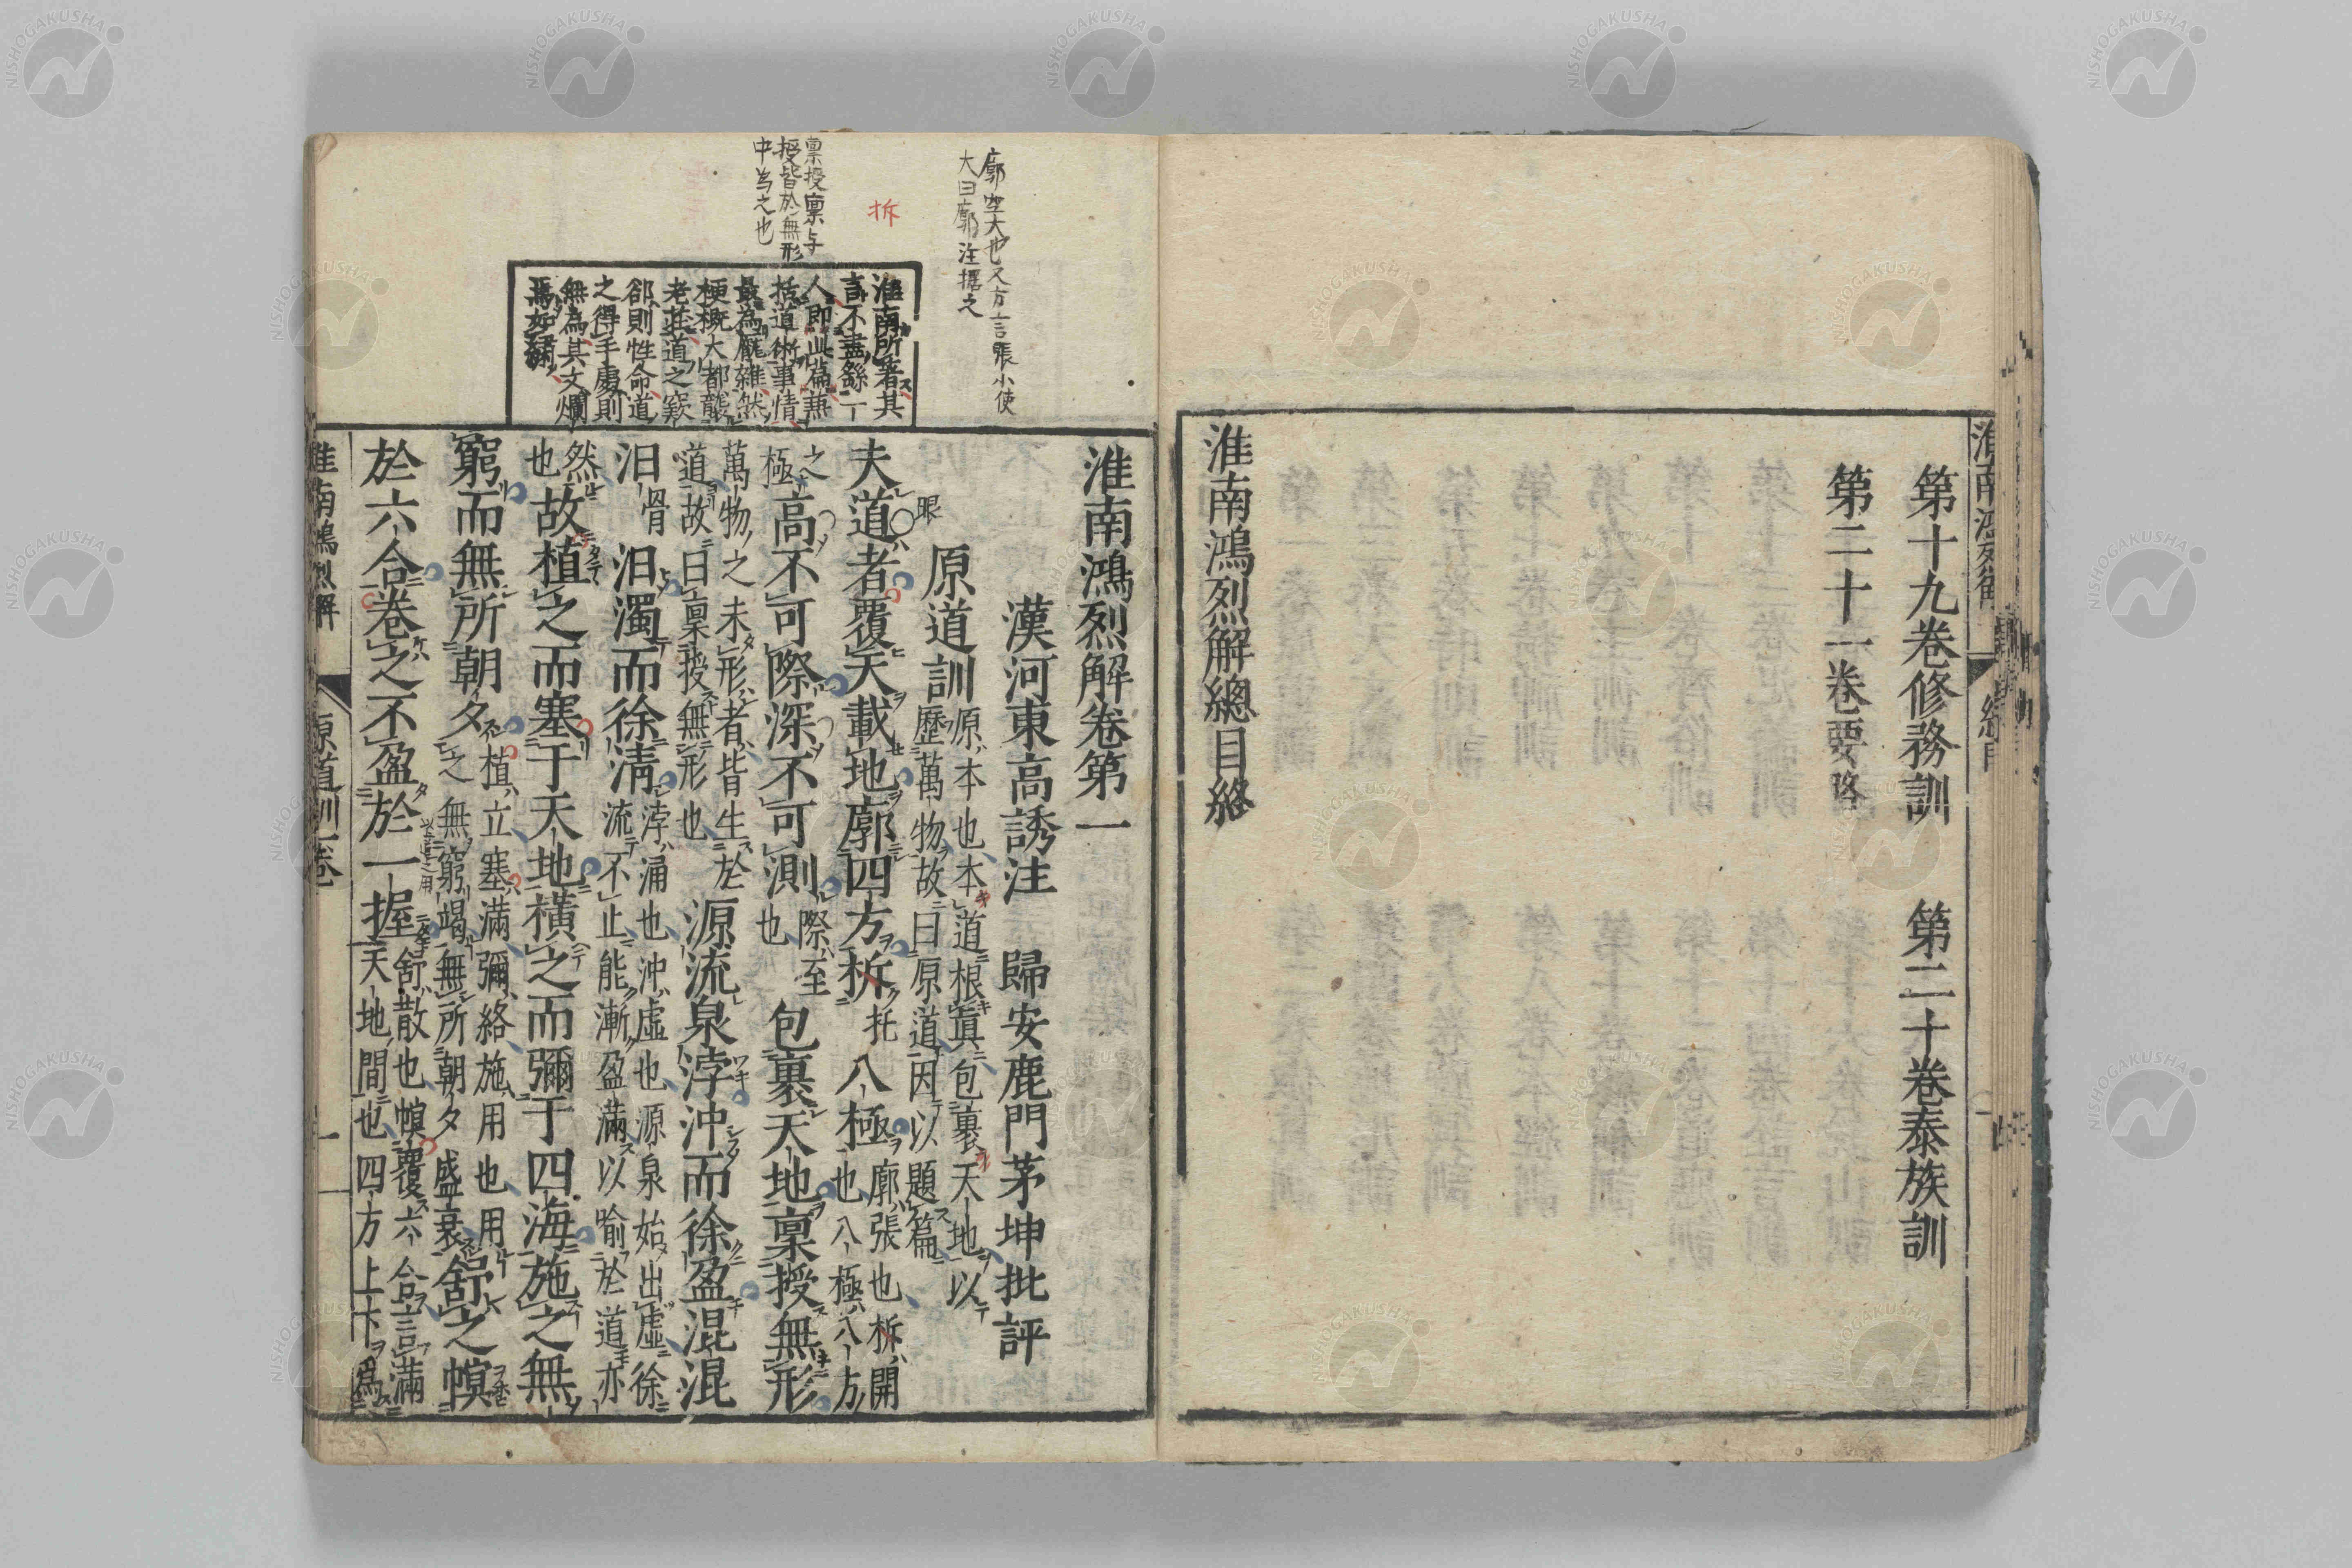 第十九卷修務訓　第二十卷泰族訓
第二十一卷要略
淮南鴻烈解總目終
廓空大也又方言張小使
大曰廓注據之
拆
稟授稟与
授皆於無形
中為之也
淮南所著其
言不盡繇一
人即此篇兼
括道術事情
最為厖雜然
梗概大都龍
老莊道之窾
郤則性命道
之得手處則
無為其文爛
焉如繡
淮南鴻烈解卷第一
漢河東高誘注　歸安鹿門茅坤批評
原道訓
原本也本道根眞包裹天地以
歷萬物故曰原道因以題篇
眼
夫道者覆天載地廓四方柝托八極
廓張也柝開
也八極八方
之
極
高不可際深不可測
際至
也
包裹天地稟授無形
萬物之未形者皆生於
道故曰稟授無形也
源流泉浡沖而徐盈混混
汩骨汩濁而徐清
浡涌也沖虛也源泉始出虛徐
流不止能漸盈滿以喻於道亦
然
也
故植之而塞于天地橫之而彌于四海施之無
窮而無所朝夕
植立塞滿彌絡施用也用
之無窮竭無所朝夕盛衰
舒之幎
於六合卷之不盈於一握
舒散也幎覆六合言滿
天地間也四方上下為
淮南鴻烈解　原道訓一卷　一
NISHOGAKUSHA